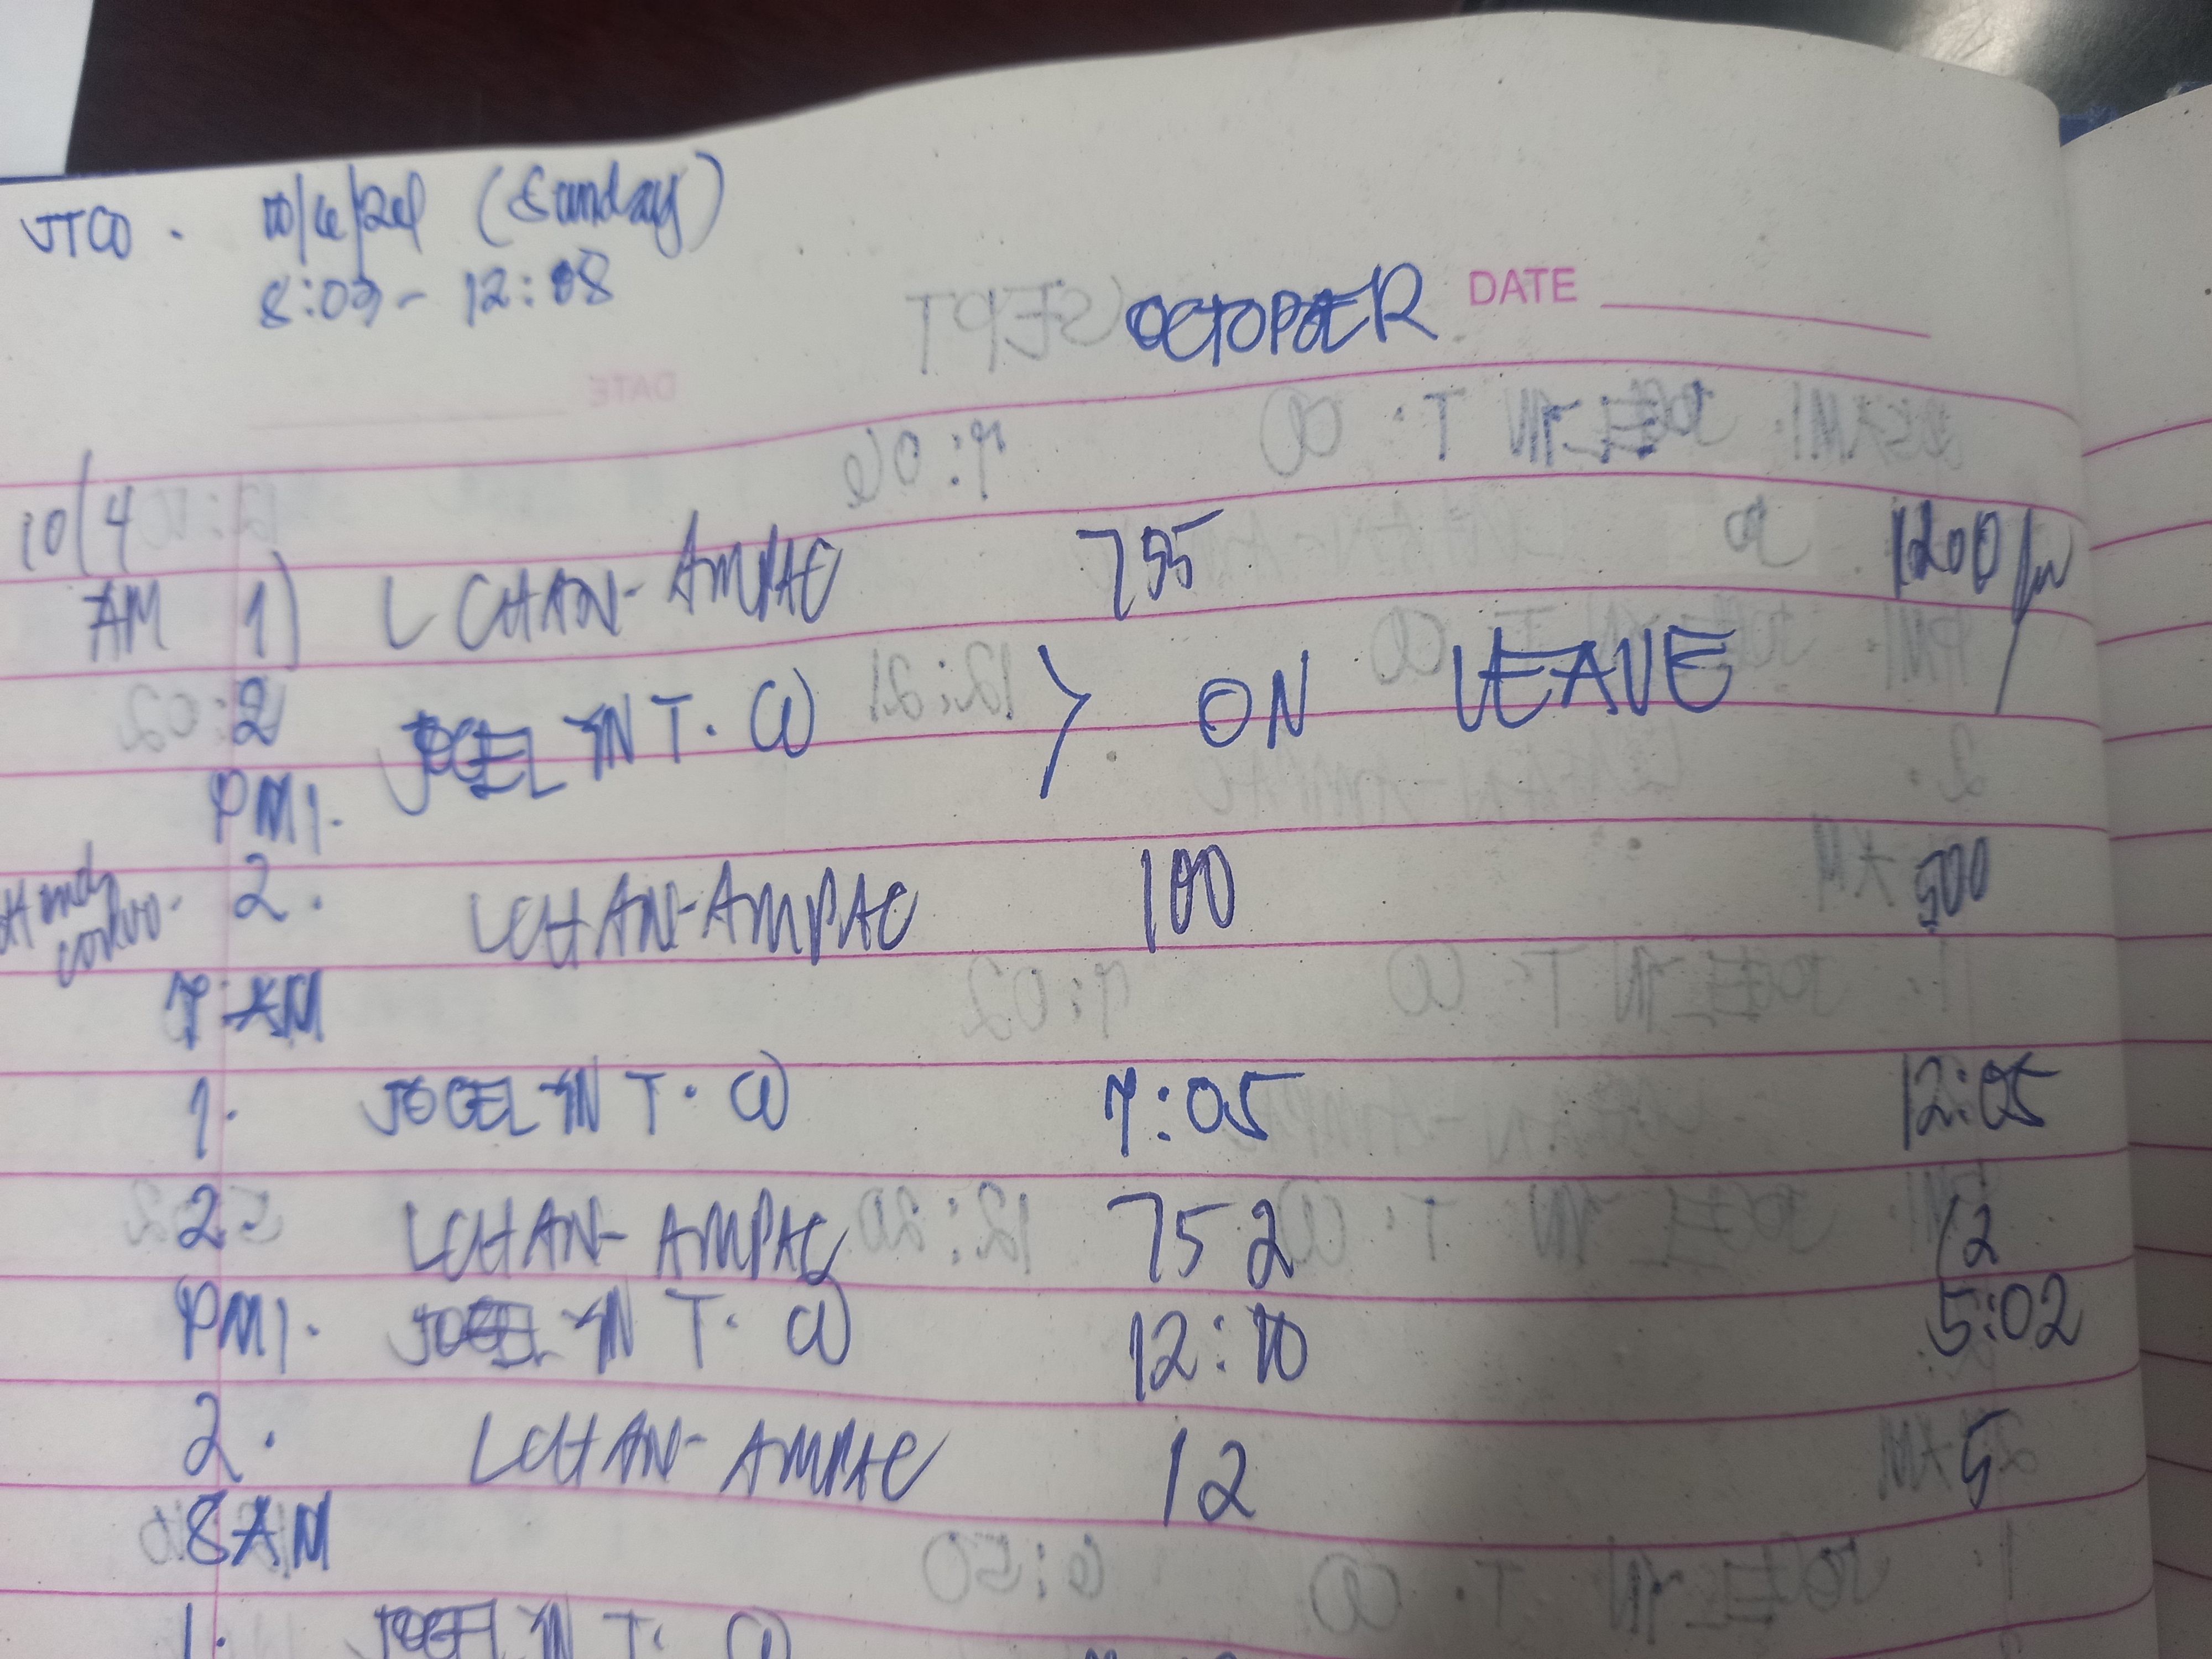 JTCO. 10/6/24 (Sunday)
8:03 - 12:08
OCTOBER DATE
10/4
AM 1) LCHAN-AMPAC 755 1200
2 JOCELYN T. CO > ON LEAVE
PM 1.
2. LCHAN-AMPAC 100 500
7 AM
1. JOCELYN T. CO 7:05 12:05
2 LCHAN-AMPAC 752 12
PM 1. JOCELYN T. CO 12:10 5:02
2. LCHAN-AMPAC 12 5
8 AM
1. JOCELYN T. CO